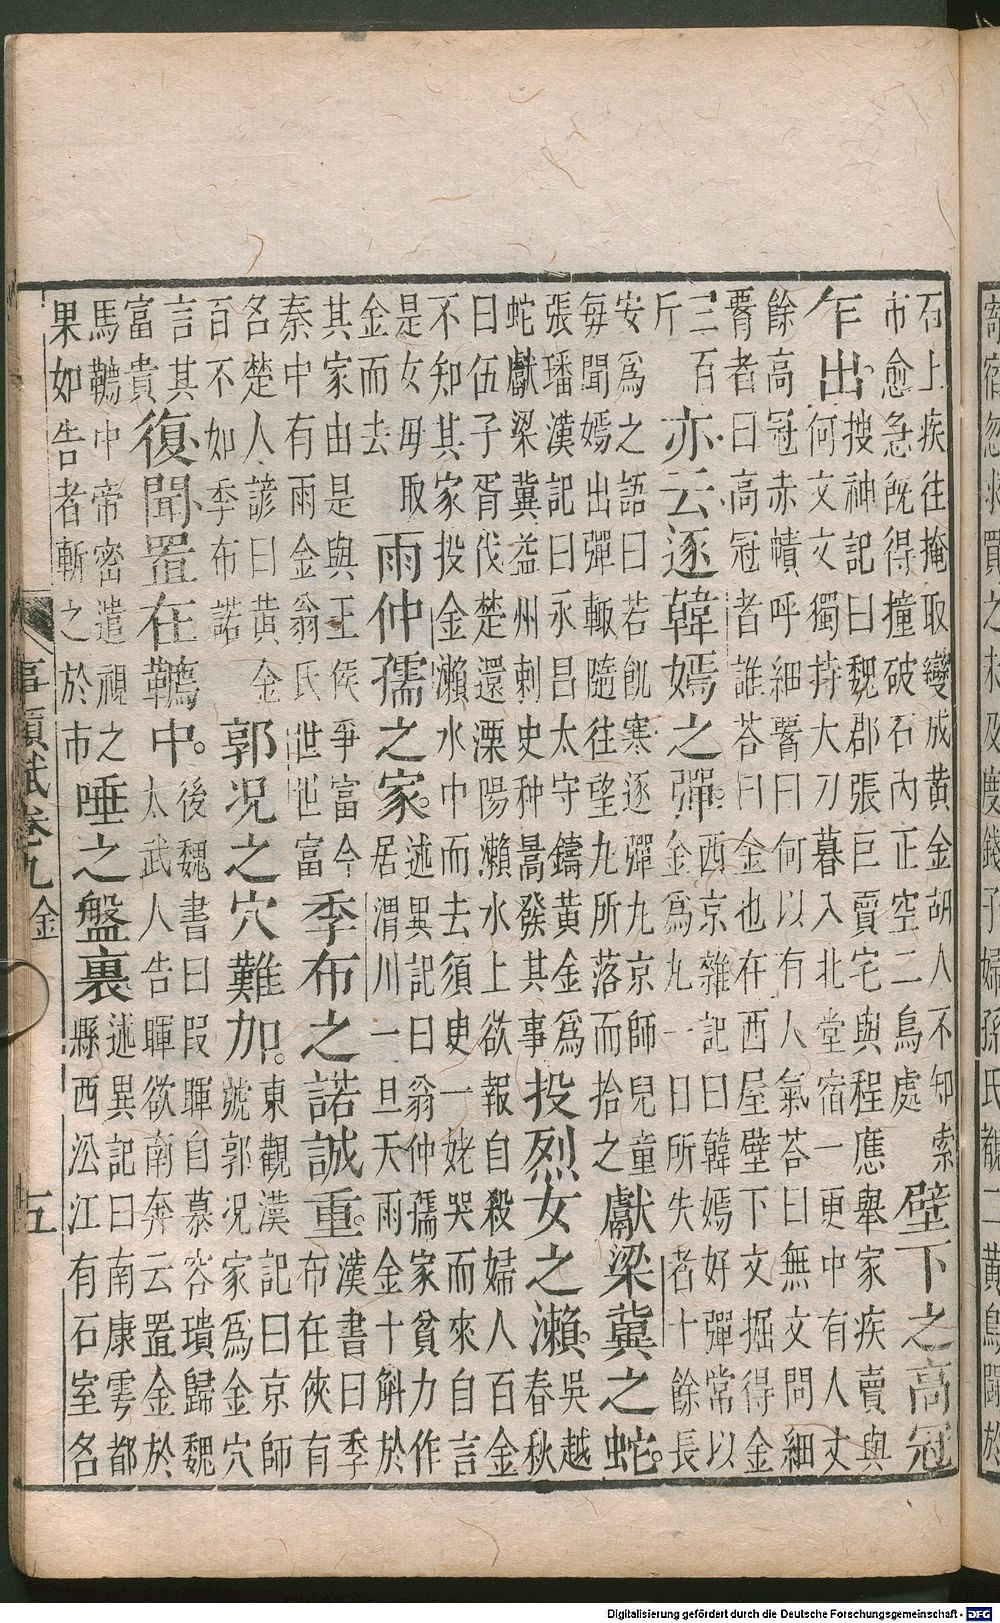 寄宿忽求買之未及度錢子婦孫氏覩二黃鳥鬭於
石上疾往掩取變成黃金胡人不知索
市愈急旣得撞破石內正空二鳥處
壁下之高冠
乍出
搜神記曰魏郡張巨賣宅與程應舉家疾賣與
何文文獨持大刀暮入北堂宿一更中有人丈
餘高冠赤幘呼細翳曰何以有人氣荅曰無文問細
翳者曰高冠者誰荅曰金也在西屋壁下文掘得金
三百
斤
亦云逐韓嫣之彈
西京雜記曰韓嫣好彈常以
金爲九一日所失者十餘長
安爲之語曰若飢寒逐彈九京師兒童
每聞嫣出彈輙隨往望九所落而拾之
獻梁冀之蛇
張璠漢記曰永昌太守鑄黃金爲
蛇獻梁冀益州刺史种暠發其事
投烈女之瀨
吳越
春秋
曰伍子胥伐楚還溧陽瀨水上欲報自殺婦人百金
不知其家投金瀨水中而去須臾一姥哭而來自言
是女毋取
金而去
雨仲孺之家
述異記曰翁仲孺家貧力作
居渭川一旦天雨金十斛於
其家由是與王侯爭富今
秦中有雨金翁氏世世富
季布之諾誠重
漢書曰季
布在俠有
名楚人諺曰黃金
百不如季布諾
郭况之穴難加
東觀漢記曰京師
號郭况家爲金穴
言其
富貴
復聞置在韉中
後魏書曰叚暉自慕容璝歸魏
太武人告暉欲南奔云置金於
馬韉中帝密遣視之
果如告者斬之於市
唾之盤裏
述異記曰南康雩都
縣西㳂江有石室名
事類賦卷九 金 五
Digitalisierung gefördert durch die Deutsche Forschungsgemeinschaft - DFG